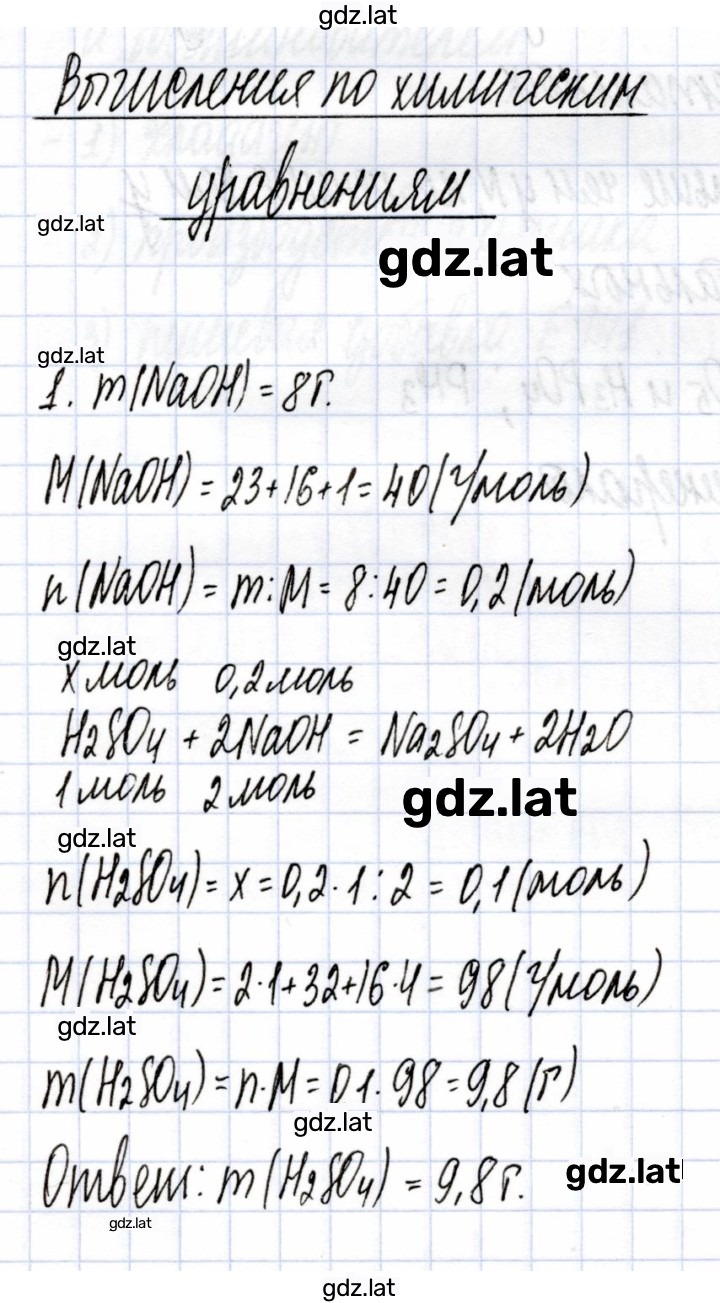 gdz.lat
Вычисления по химическим
уравнениям
gdz.lat
gdz.lat
gdz.lat
1. m(NaOH) = 8г.
M(NaOH) = 23+16+1 = 40(г/моль)
n(NaOH) = m:M = 8:40 = 0,2(моль)
gdz.lat
x моль 0,2моль
H2SO4 + 2NaOH = Na2SO4 + 2H2O
1моль 2моль
gdz.lat
gdz.lat
n(H2SO4) = x = 0,2·1:2 = 0,1(моль)
M(H2SO4) = 2·1+32+16·4 = 98(г/моль)
gdz.lat
m(H2SO4) = n·M = 0 1·98 = 9,8(г)
gdz.lat
Ответ: m(H2SO4) = 9,8г.
gdz.lat
gdz.lat
gdz.lat